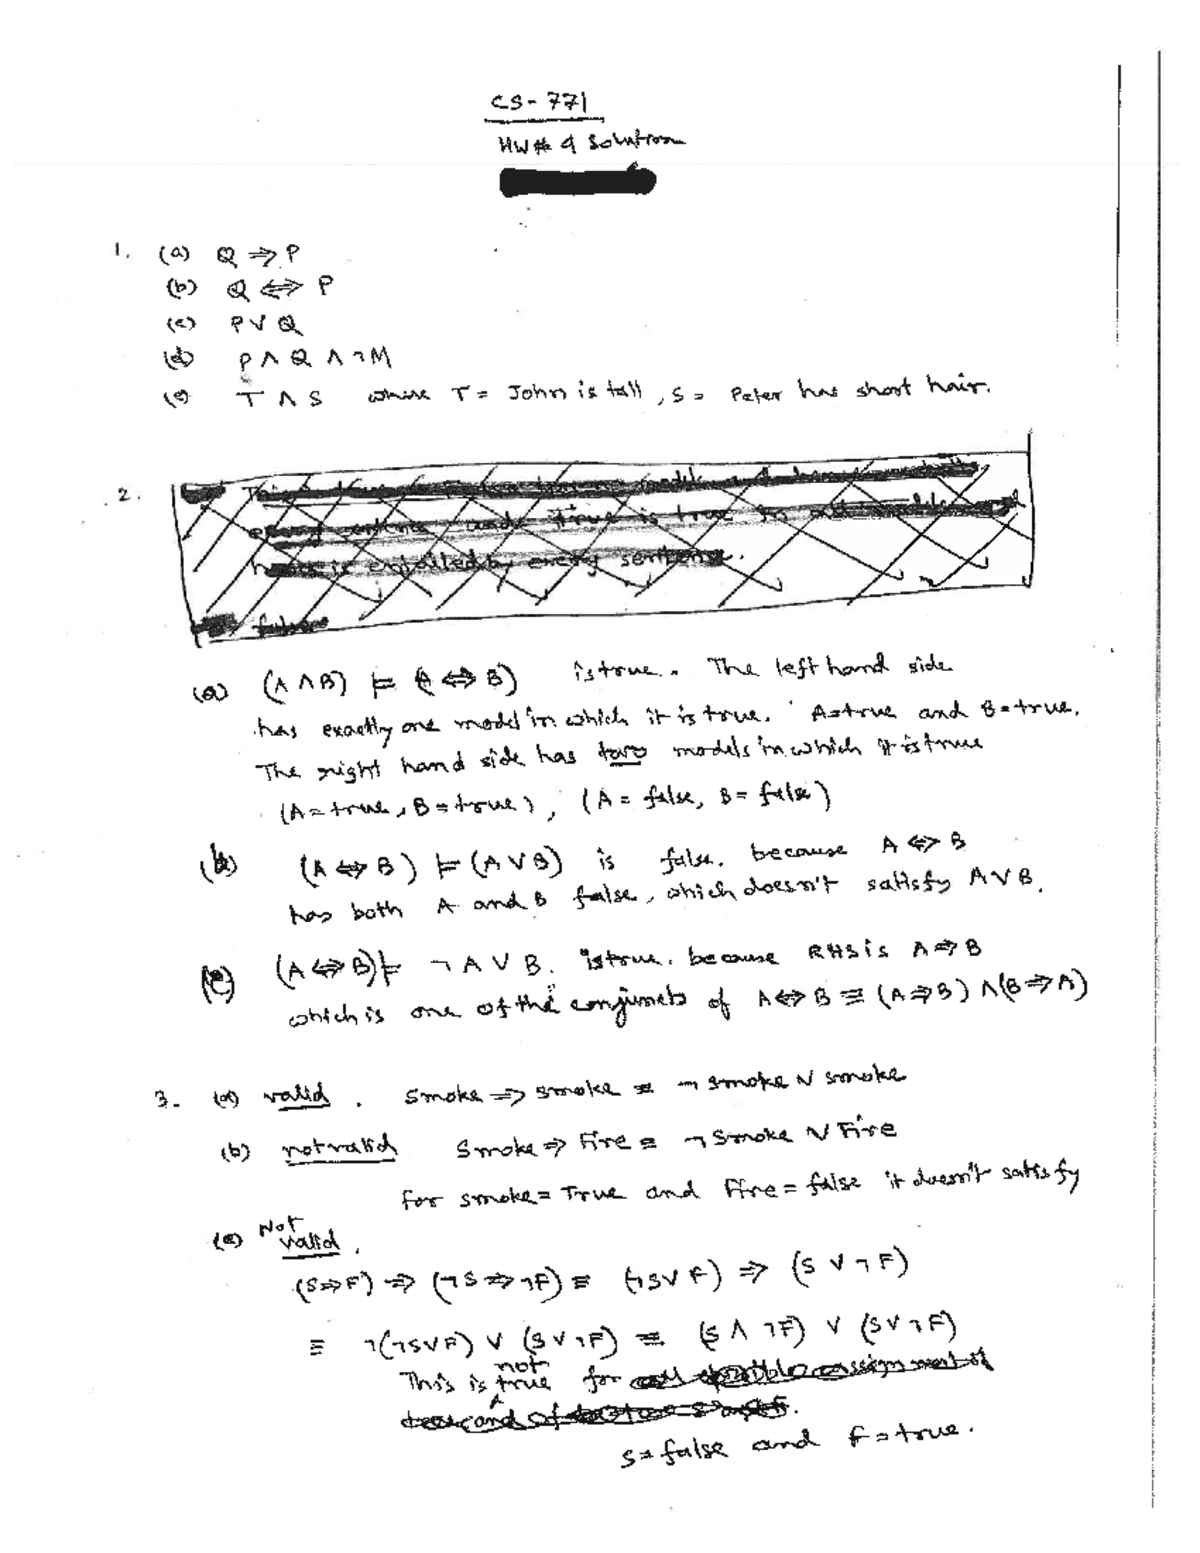 CS-771
HW# 4 Solution
1. (a) Q ⇒ P
(b) Q ⇔ P
(c) P ∨ Q
(d) P ∧ Q ∧ ¬M
(e) T ∧ S where T = John is tall, S = Peter has short hair.
2.
is entailed by every sentence.
false
(a) (A ∧ B) ⊨ (A ⇔ B) is true. The left hand side
has exactly one model in which it is true. A=true and B=true.
The right hand side has two models in which it is true
(A=true, B=true), (A=false, B=false)
(b) (A ⇔ B) ⊨ (A ∨ B) is false. because A ⇔ B
has both A and B false, which doesn't satisfy A ∨ B.
(c) (A ⇔ B) ⊨ ¬A ∨ B. is true. because RHS is A ⇒ B
which is one of the conjuncts of A ⇔ B ≡ (A ⇒ B) ∧ (B ⇒ A)
3. (a) valid. Smoke ⇒ smoke ≡ ¬smoke ∨ smoke
(b) not valid Smoke ⇒ Fire ≡ ¬Smoke ∨ Fire
for smoke = True and Fire = false it doesn't satisfy
(c) Not valid.
(S ⇒ F) ⇒ (¬S ⇒ ¬F) ≡ (¬S ∨ F) ⇒ (S ∨ ¬F)
≡ ¬(¬S ∨ F) ∨ (S ∨ ¬F) ≡ (S ∧ ¬F) ∨ (S ∨ ¬F)
This is not true for
S = false and F = true.